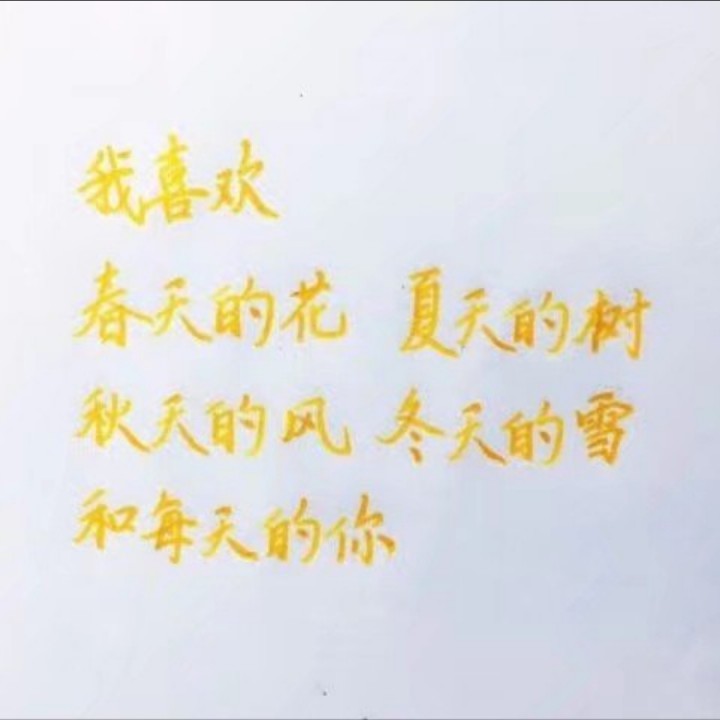 我喜欢
春天的花 夏天的树
秋天的风 冬天的雪
和每天的你